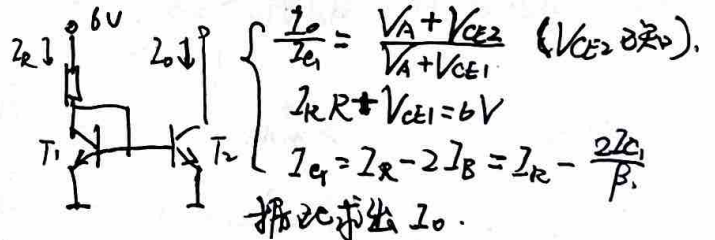 6V
I_R↓ I_o↓
T₁ T₂
I_o/I_{c1} = (V_A + V_{CE2})/(V_A + V_{CE1}) (V_{CE2}已知).
I_R R + V_{CE1} = 6V
I_{c1} = I_R - 2I_B = I_R - 2I_{c1}/β.
据此求出 I_o.